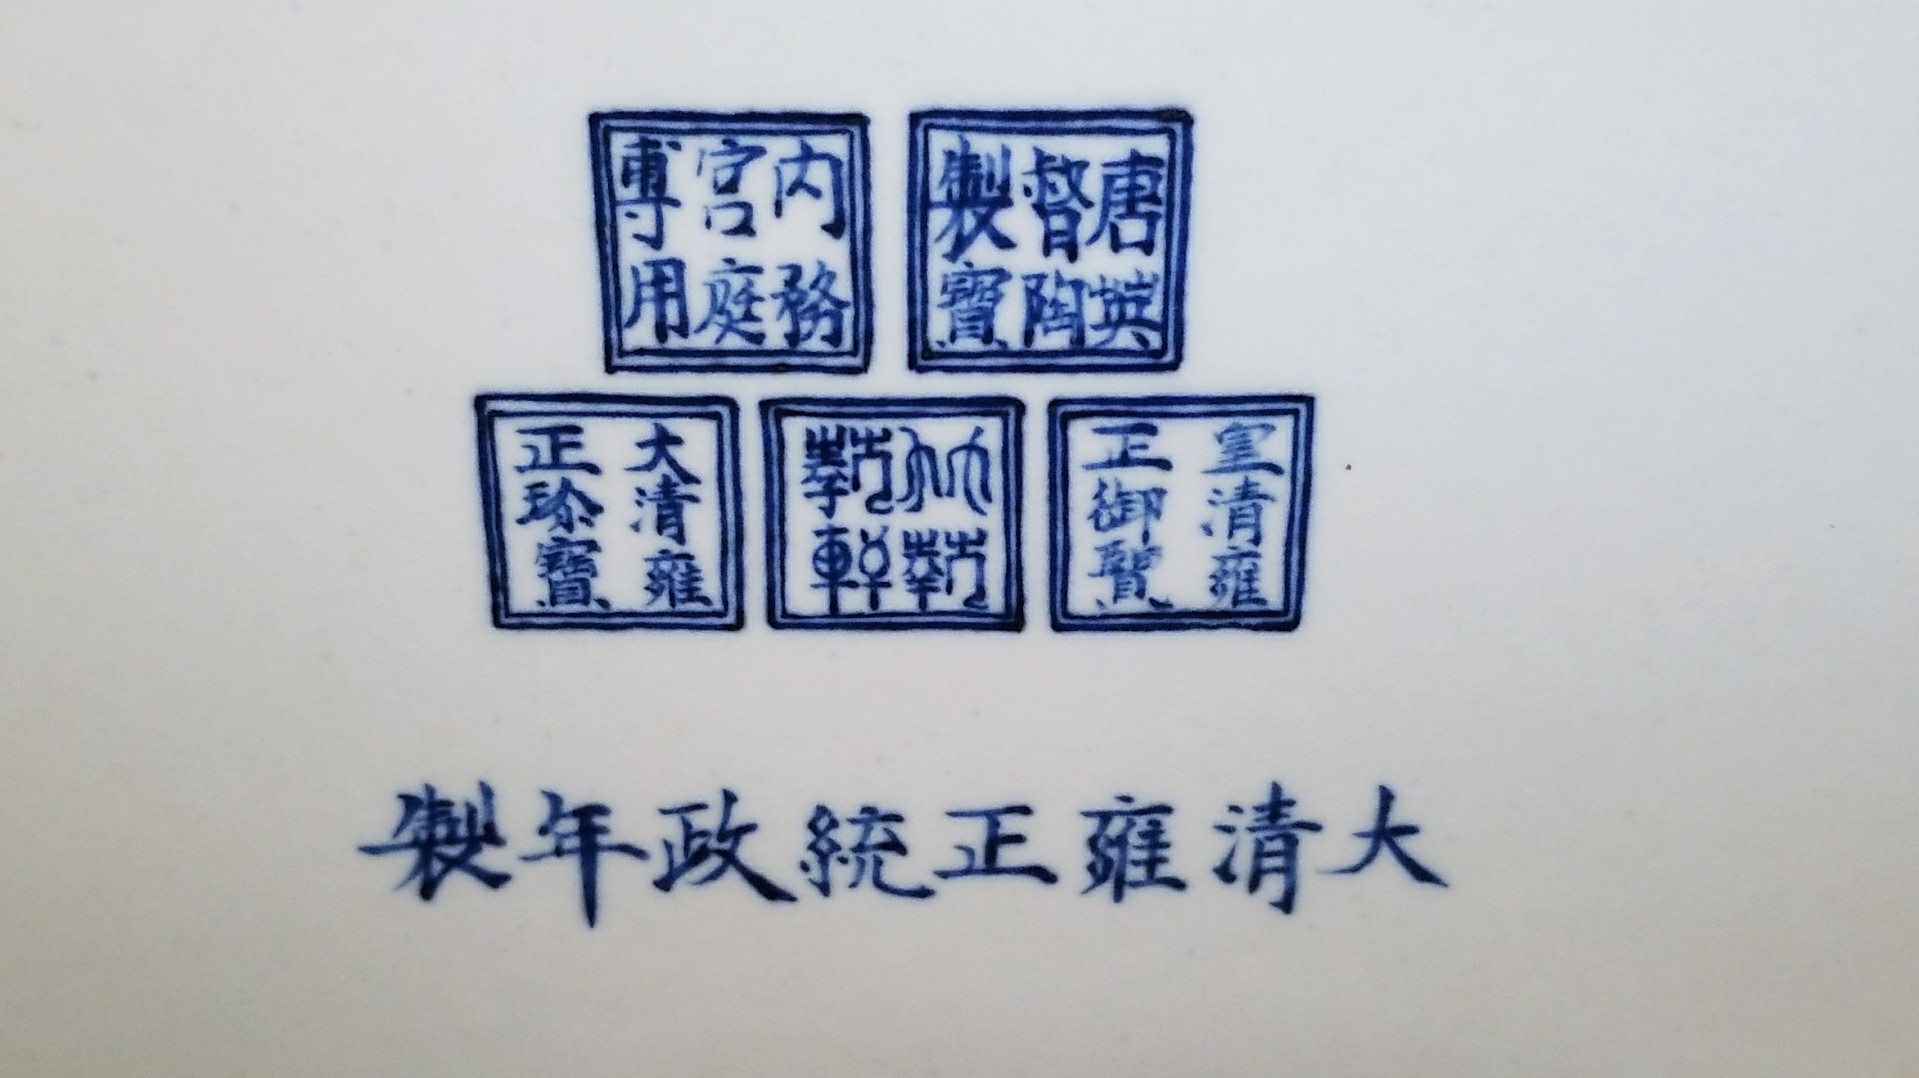 唐英
督陶
製寶
内務
宮庭
專用
皇清雍
正御覽
大清雍
正珍寶
大清雍正統政年製